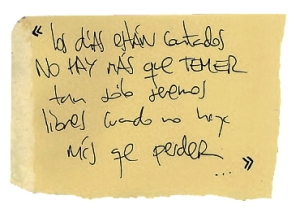 « los días están contados
NO HAY MÁS QUE TEMER
tan sólo seremos
libres cuando no haya
más qe perder
... »